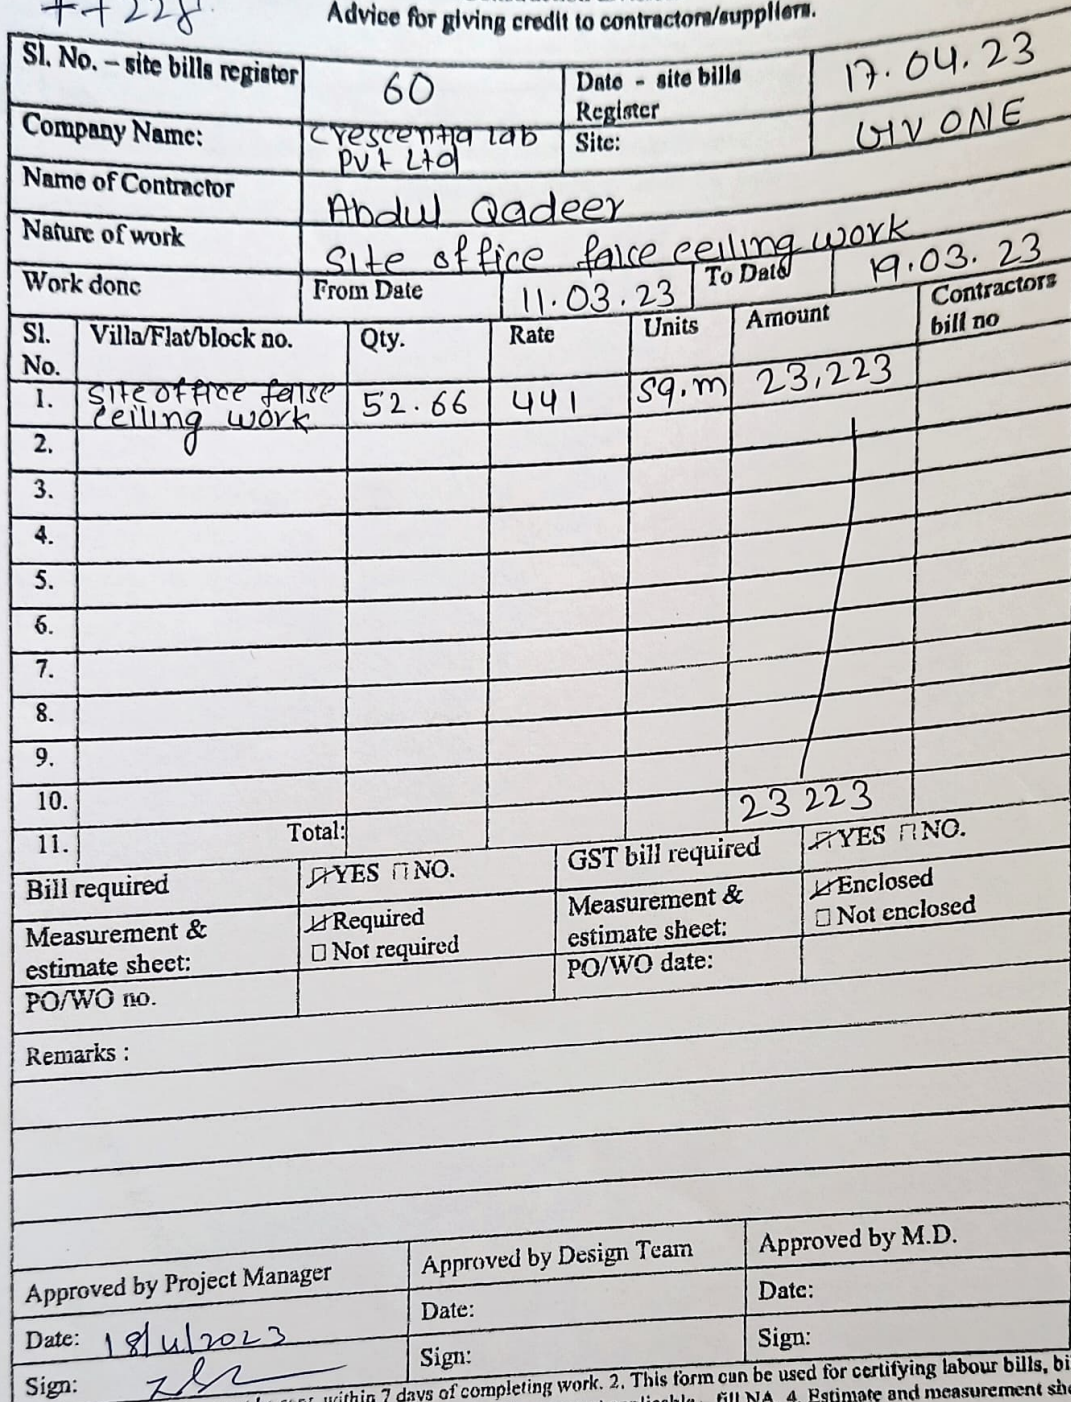 Advice for giving credit to contractors/suppliers.
Sl. No. – site bills register 60 Date - site bills Register 17.04.23
Company Name: Crescentia Lab Pvt Ltd Site: GIV ONE
Name of Contractor Abdul Qadeer
Nature of work Site office false ceiling work
Work done From Date 11.03.23 To Date 19.03.23
Sl. No. Villa/Flat/block no. Qty. Rate Units Amount Contractors bill no
1. Site office false ceiling work 52.66 441 sq.m 23,223
2.
3.
4.
5.
6.
7.
8.
9.
10. 23223
11. Total:
Bill required YES NO. GST bill required YES NO.
Measurement & estimate sheet: Required Not required Measurement & estimate sheet: Enclosed Not enclosed
PO/WO no. PO/WO date:
Remarks :
Approved by Project Manager Approved by Design Team Approved by M.D.
Date: 18/4/2023 Date: Date:
Sign: Sign: Sign:
within 7 days of completing work. 2. This form can be used for certifying labour bills, bi
fill NA. 4. Estimate and measurement she